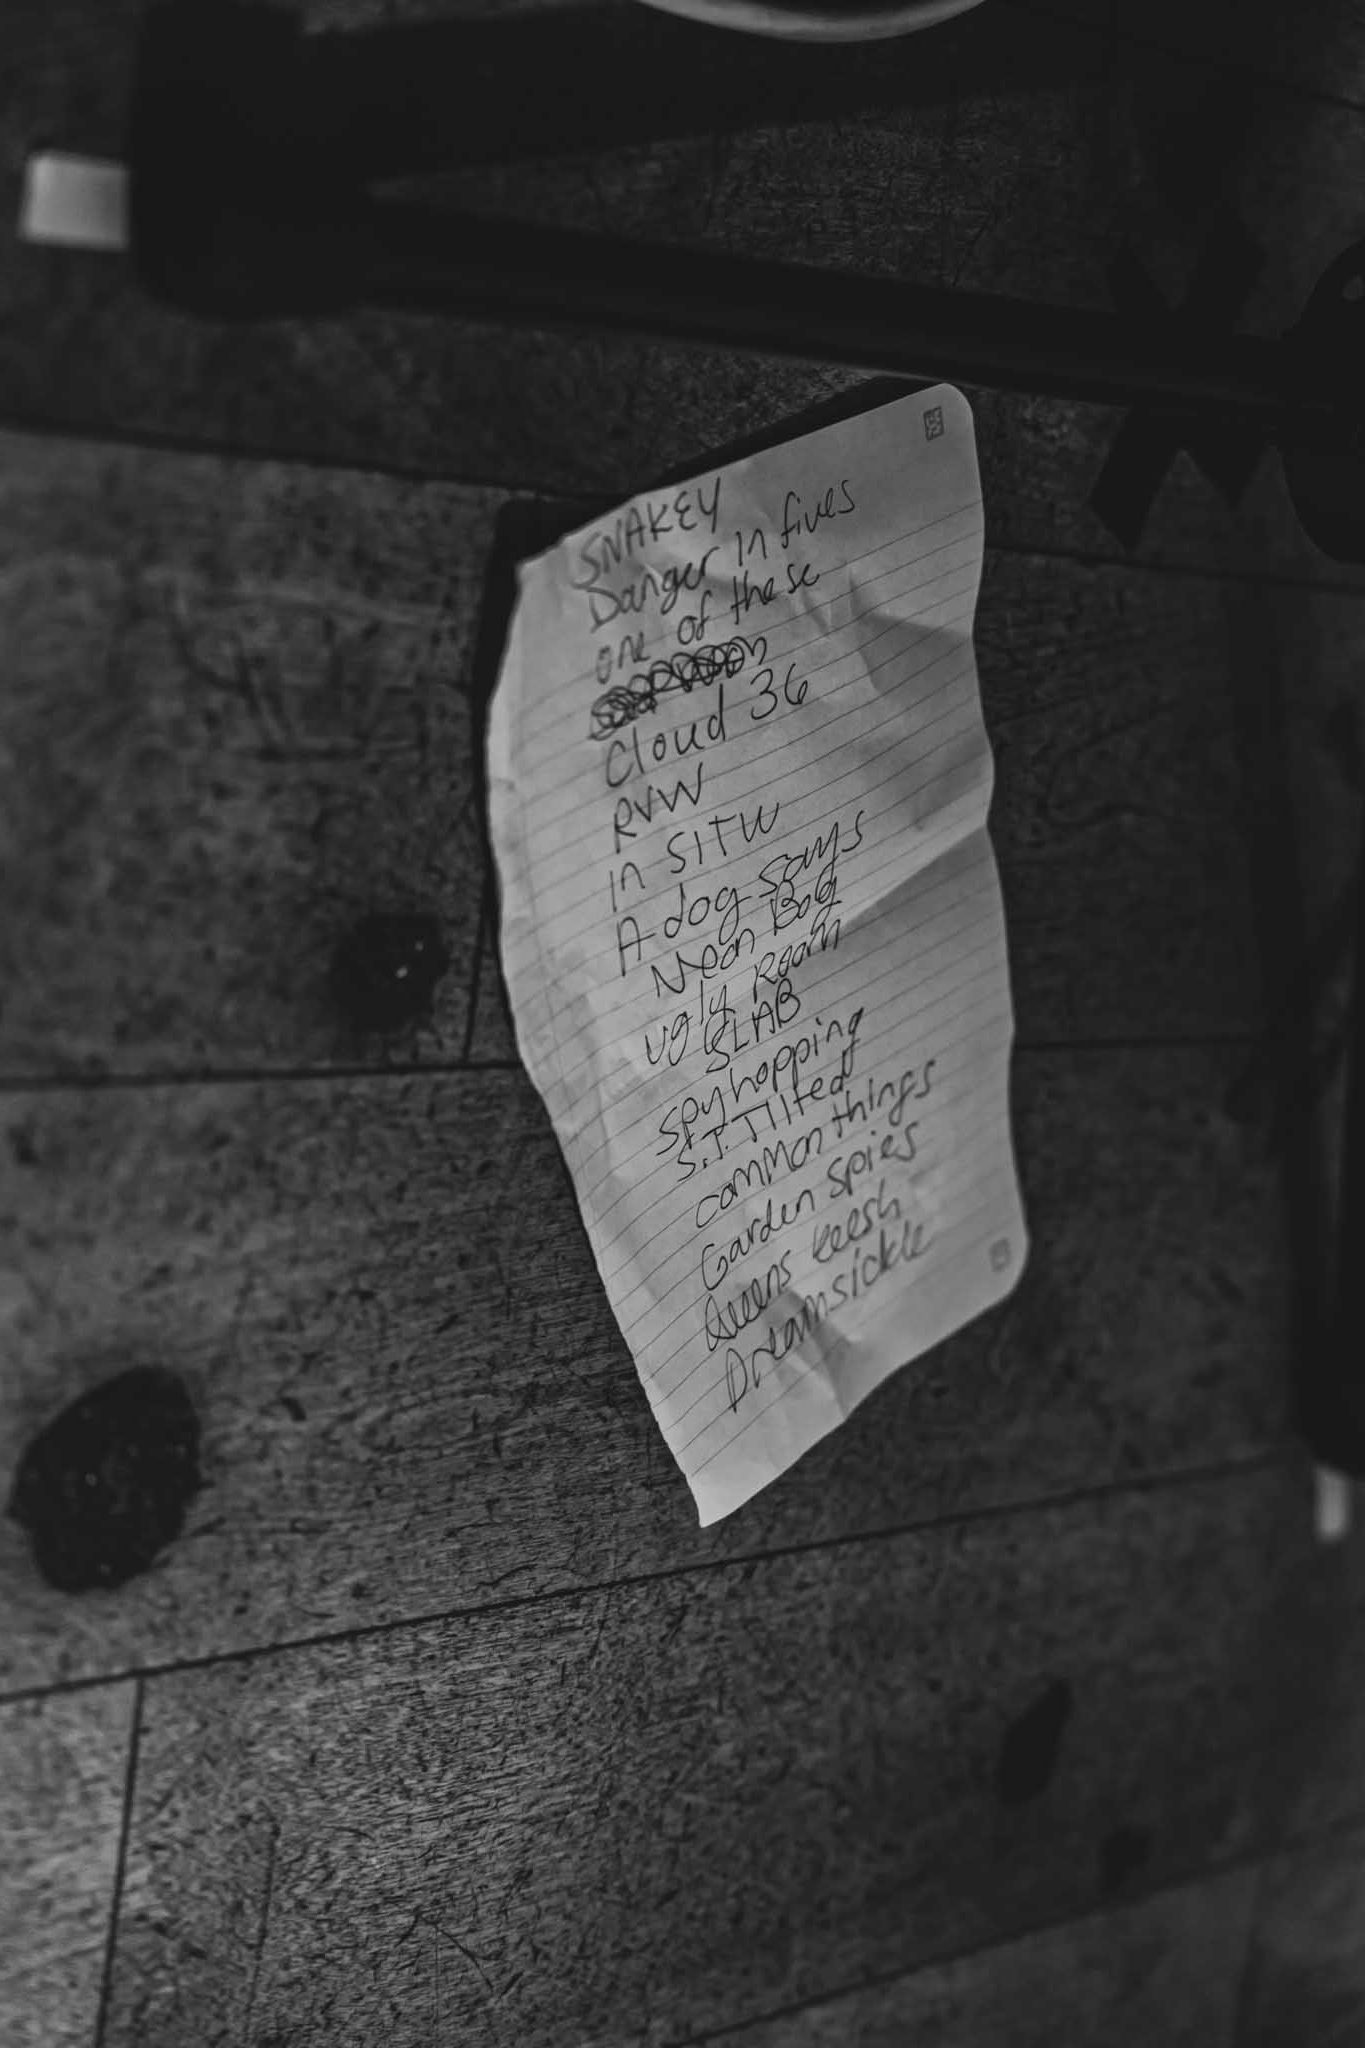 SNAKEY
Danger in fives
one of these
Cloud 36
RVW
in SITW
A dog says
Neon
ugly Room
SLAB
spyhopping
S.T. Tilted
common things
Garden spies
Queens
Dreamsickle